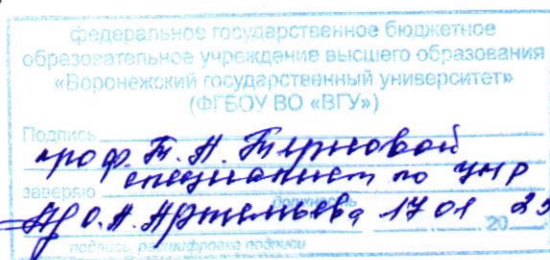 федеральное государственное бюджетное
образовательное учреждение высшего образования
«Воронежский государственный университет»
(ФГБОУ ВО «ВГУ»)
Подпись
проф. Т. А. Терновой
специалист по УНР
заверяю
должность
О.А. Артемьева 17 01 20 25
подпись, расшифровка подписи